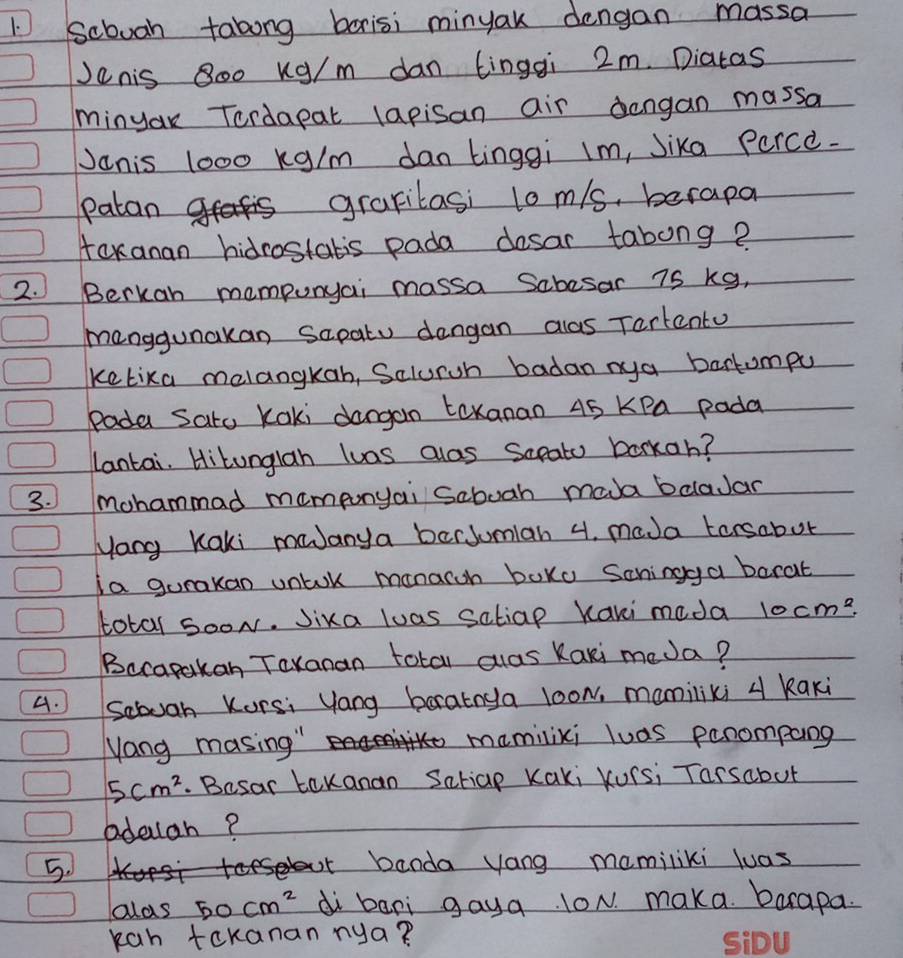 1. Sebuah tabung berisi minyak dengan massa
Jenis 800 kg/m dan tinggi 2m. Diatas
minyak Terdapat lapisan air dengan massa
Jenis 1000 kg/m dan tinggi 1m, Jika Perce-
patan grafis grafitasi 10 m/s. berapa
tekanan hidrostatis pada dasar tabung?
2. Berkah mempunyai massa Sebesar 75 kg,
menggunakan sepatu dengan alas Tertentu
Ketika melangkah, Seluruh badannya bertumpu
Pada Satu Kaki dengan tekanan 45 KPa pada
lantai. Hitunglah luas alas Sepatu berkah?
3. Mohammad mempunyai Sebuah meja belajar
Yang Kaki mejanya berjumlah 4. meja tersebut
ia gunakan untuk menaruh buku Seningga berat
total 500N. Jika luas setiap kaki meja 10cm².
Berapakah Tekanan total alas Kaki meja?
4. Sebuah Kursi Yang beratnya 100N, memiliki 4 kaki
Yang masing" memiliki luas penampang
5cm². Besar tekanan Setiap Kaki Kursi Tersebut
adalah?
5. Kursi tersebut benda yang memiliki luas
alas 50 cm² di beri gaya 10N. maka berapa
kah tekanan nya?
SiDU